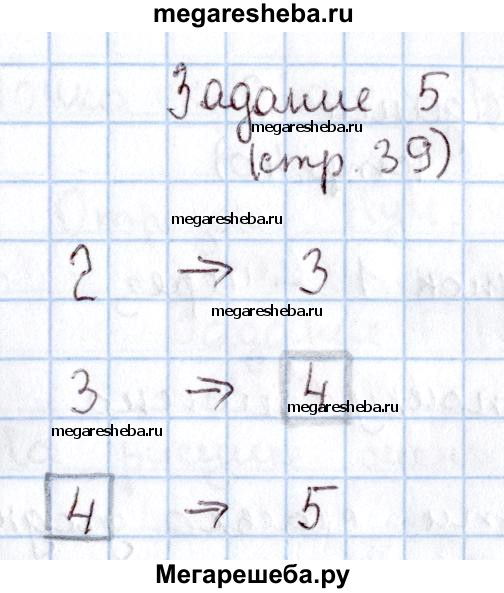 megaresheba.ru
Задание 5
megaresheba.ru
(стр. 39)
megaresheba.ru
2 → 3
megaresheba.ru
3 → 4
megaresheba.ru
megaresheba.ru
4 → 5
Мегарешеба.ру